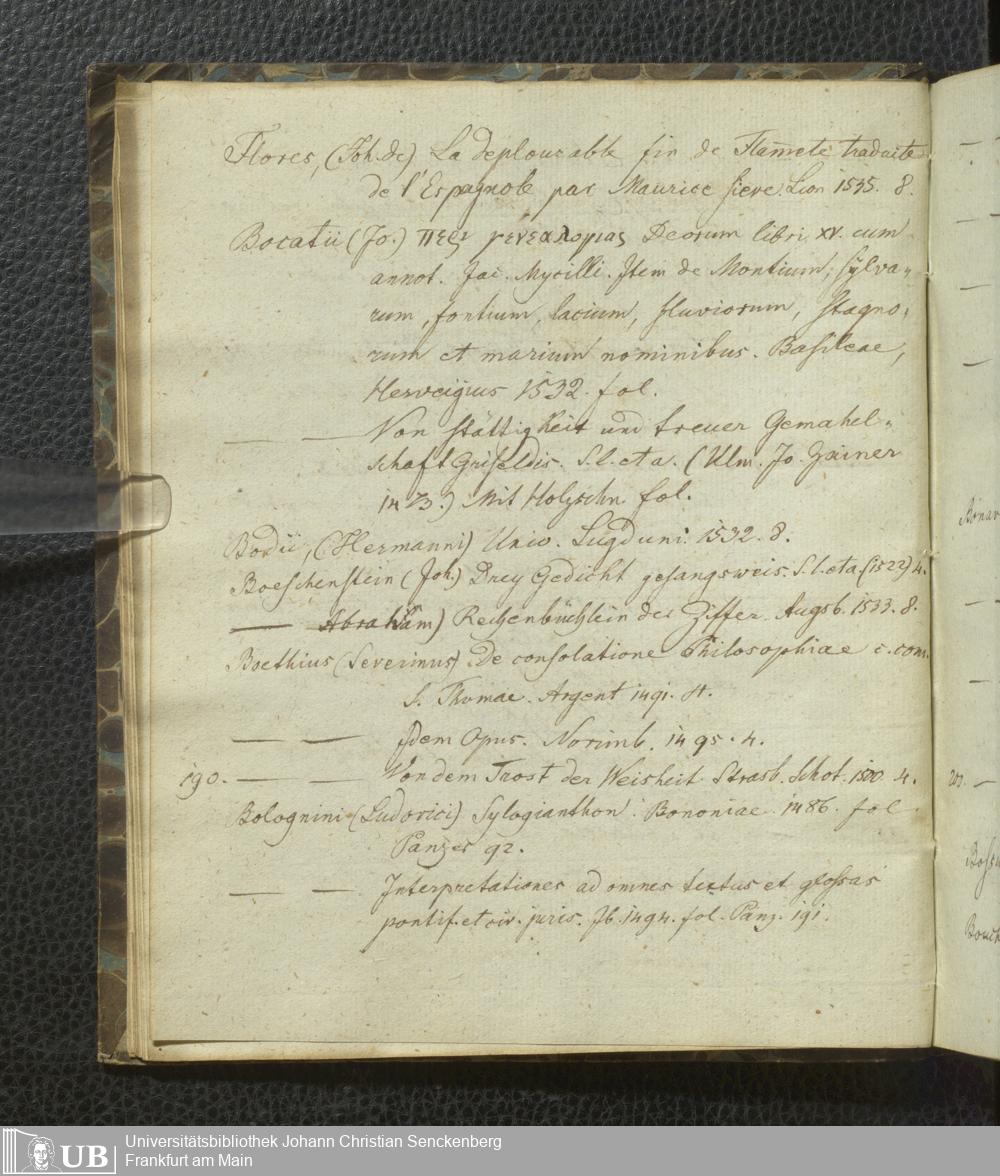 Flores, (Joh. de) La deplourable fin de Flam̄ete traduite
de l'Espagnole par Maurice sieve. Lion 1535. 8.
Bocatii (Jo.) Περι γενεαλογιας Deorum libri XV. cum
annot. Jac. Mycilli. Item de Montium, sylva-
rum, fontium, lacium, fluviorum, stagno-
rum et marium nominibus. Basileae,
Hervegius 1532. fol.
— — Von stättigkeit und treuer Gemahel-
schaft Griseldis. S. l. et a. (Ulm. Jo. Zainer
1473.) Mit Holzschn. fol.
Bodii, (Hermanni) Unio. Lugduni. 1532. 8.
Boeschenstein (Joh.) Drey Gedicht gesangsweis. S. l. et a. (1522) 4.
— Abraham) Rechenbüchlein der Ziffer. Augsb. 1533. 8.
Boethius (Severinus) De consolatione Philosophiae c. com.
S. Thomae. Argent 1491. 4.
— — Idem Opus. Norimb. 1495. 4.
190. — — Von dem Trost der Weisheit. Strasb. Schot. 1500. 4.
Bolognini (Ludovici) Sylogianthon. Bononiae. 1486. fol
Panzer 92.
— — Interpretationes ad omnes textus et glossas
pontif. et civ. juris. Ib. 1494. fol. Panz. 191.
200.
UB
Universitätsbibliothek Johann Christian Senckenberg
Frankfurt am Main